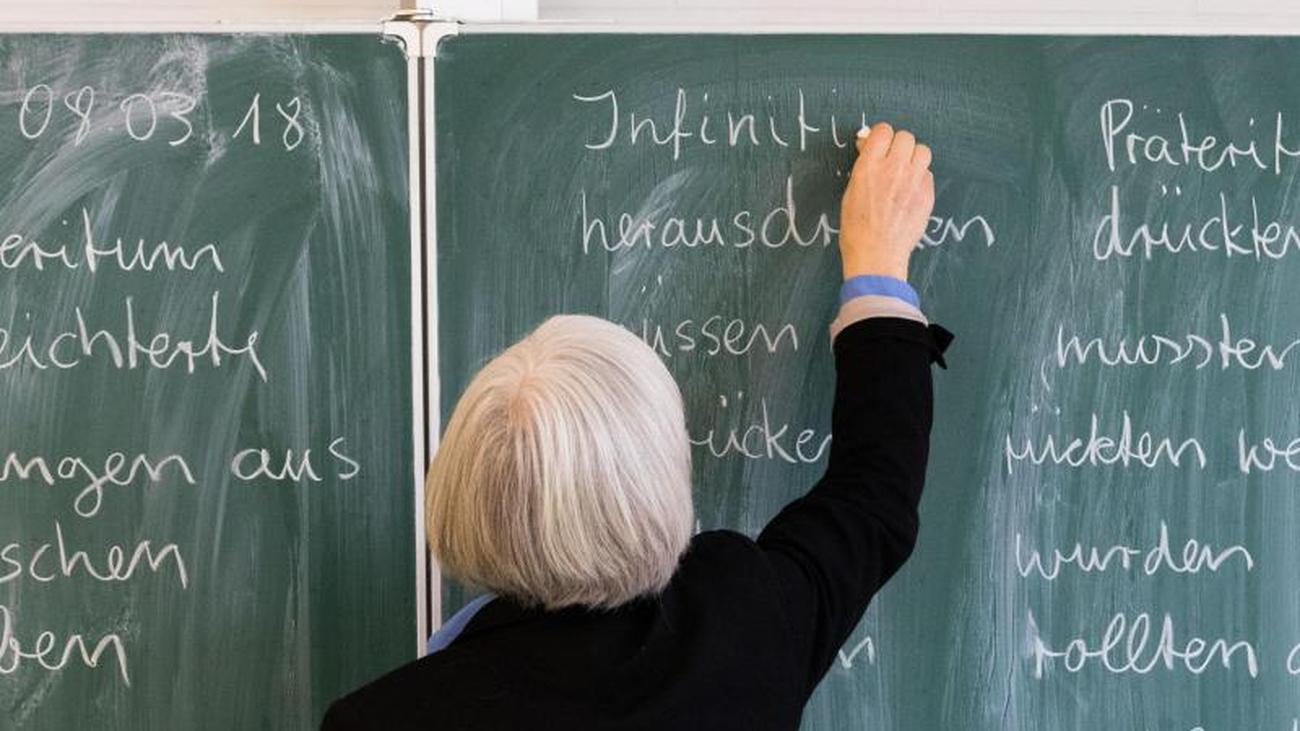 08.03.18
eritum
eichterte
ngen aus
schen
ben
Infiniti
herausdr en
üssen
ücken
Präterit
drückten
mussten
rückten we
wurden
rollten